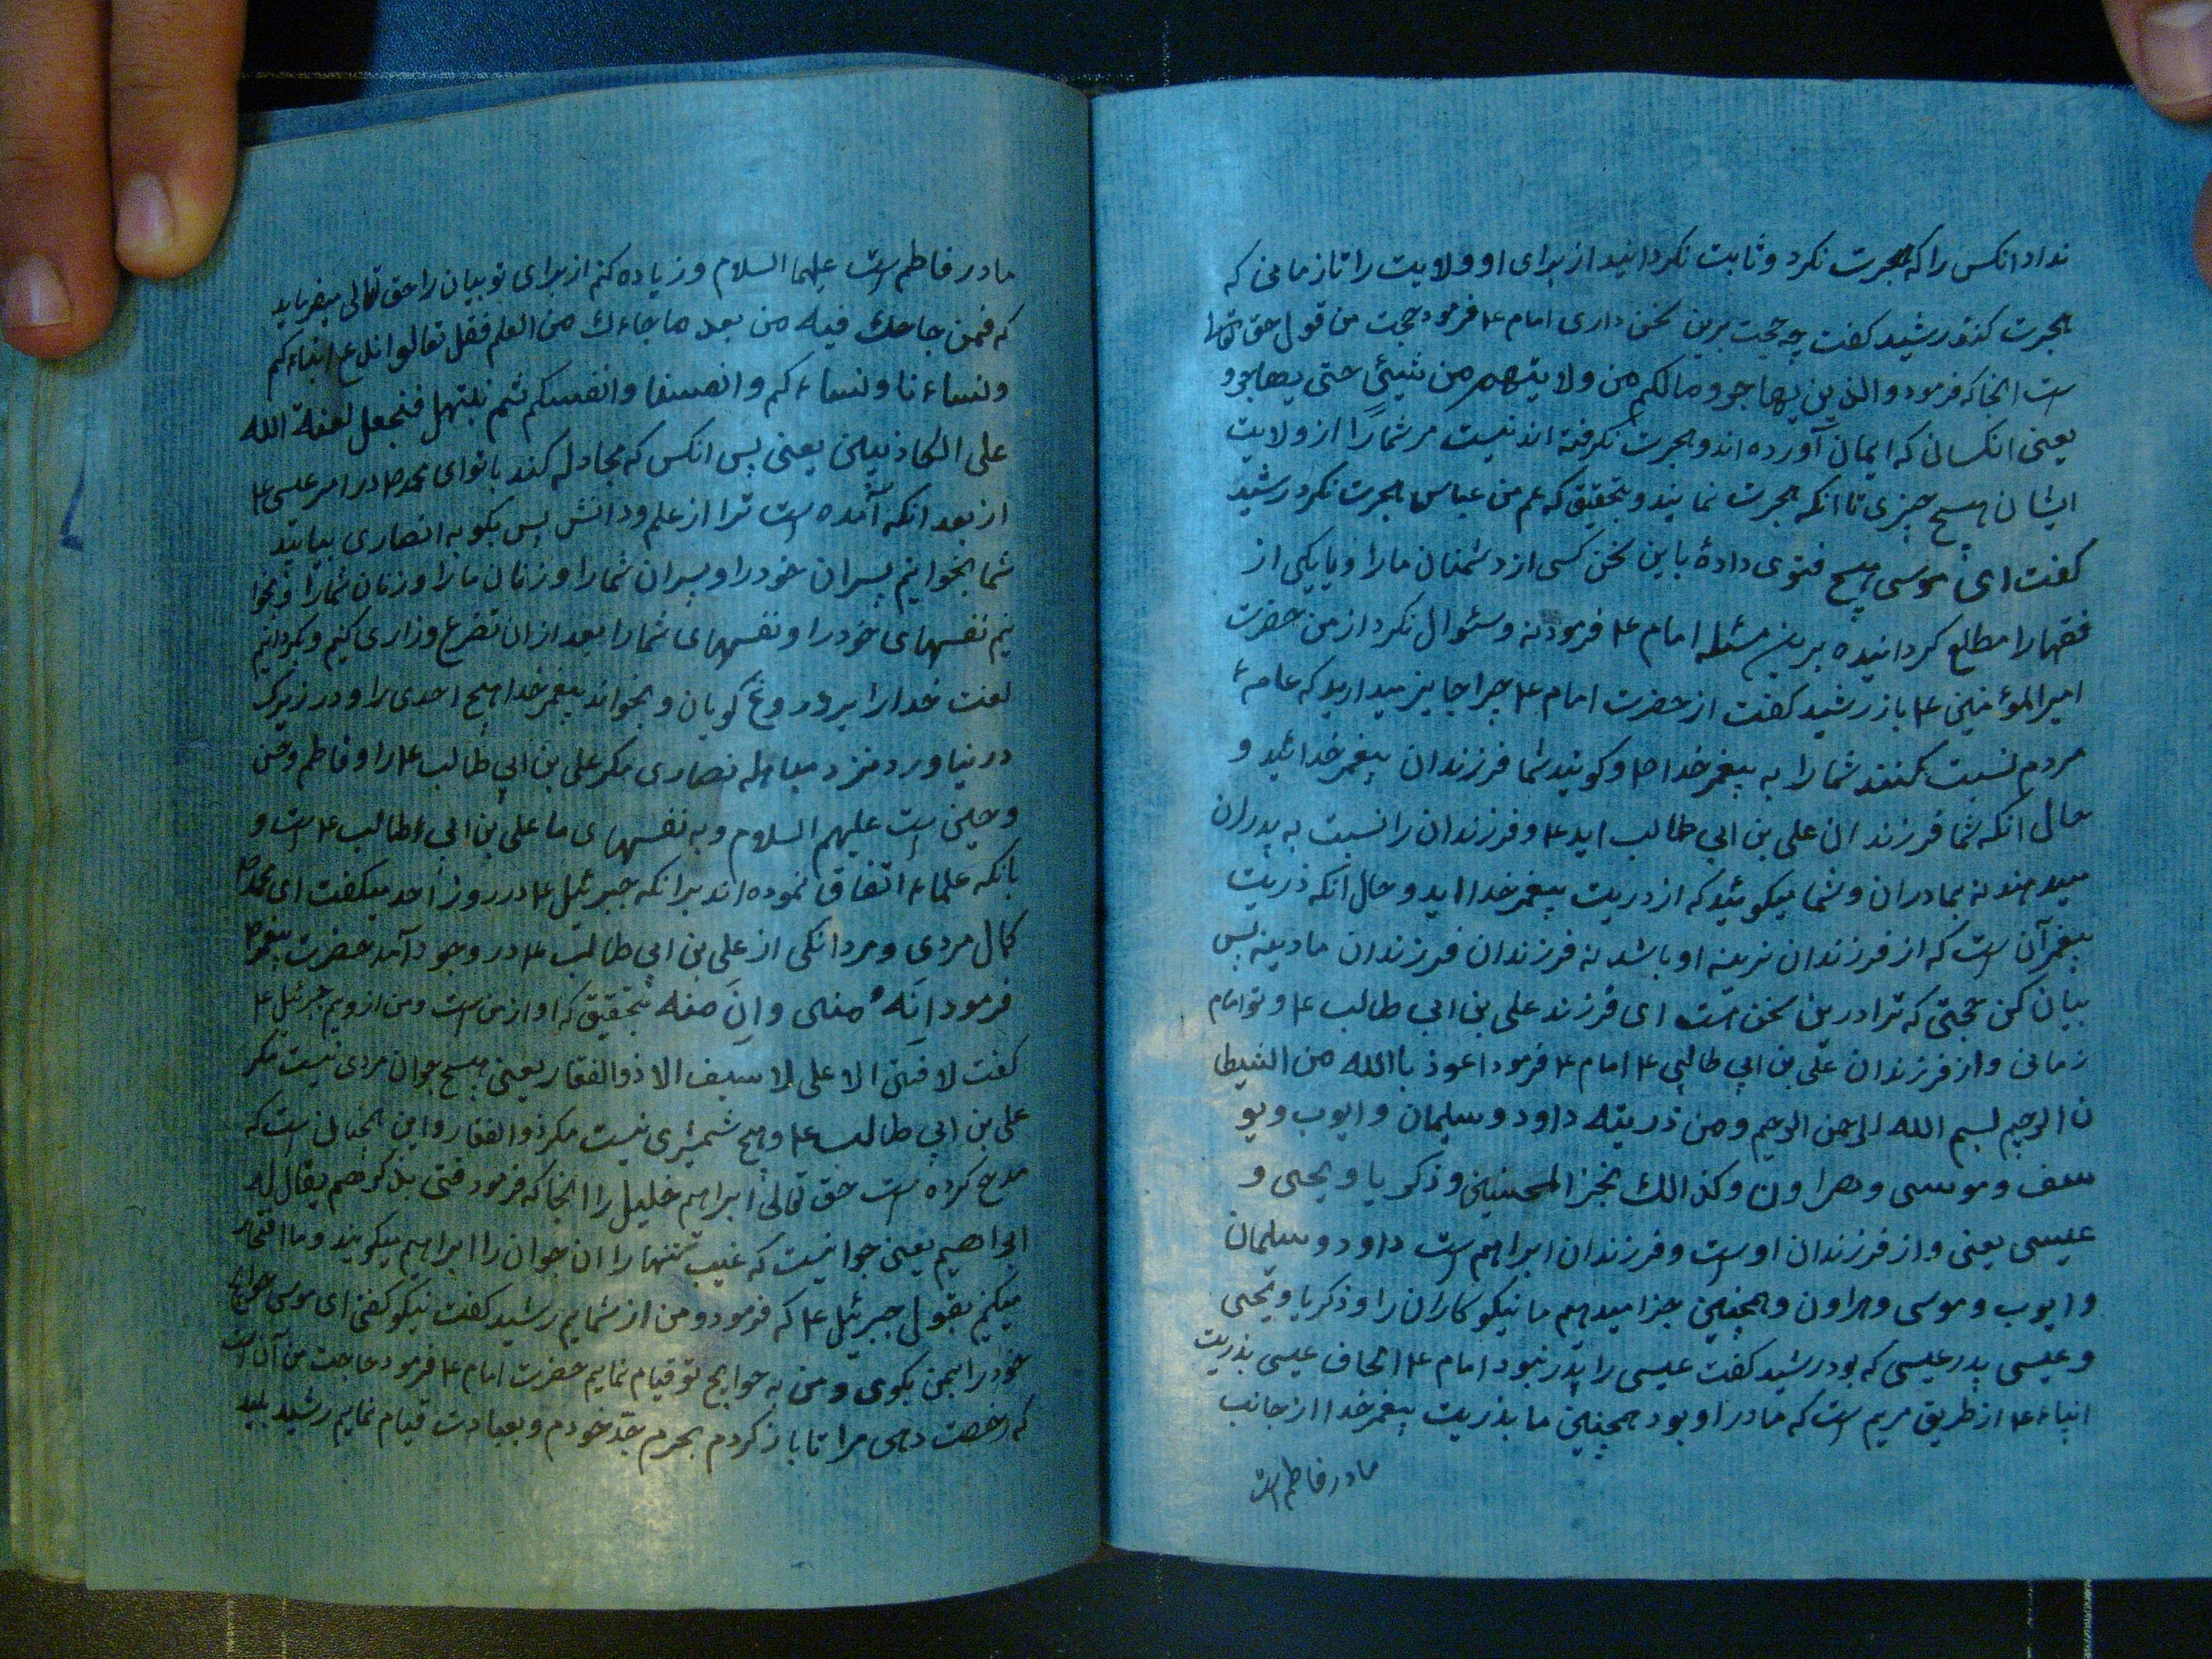 نداد انکس را که هجرت نکرد و ثابت نکردانید از برای او ولایت را تا زمانی که
هجرت کند رشید کفت چه حجت برین سخن داری امام ع فرمود حجت من قول حق تعالی
است انجا که فرمود والذین یهاجرو ومالکم من ولایتهم من شیئی حتی یهاجرو
یعنی انکسانی که ایمان آورده اند و هجرت نکرفته اند نیست مر شما را از ولایت
ایشان هیچ چیزی تا انکه هجرت نمایند و بتحقیق که عم من عباس هجرت نکرد رشید
کفت ای موسی هیچ فتوی دادهٔ باین سخن کسی از دشمنان ما را و یا یکی از
فقها را مطلع کردانیده برین مسئله امام ع فرمود نه و سئوال نکرد از من حضرت
امیر المؤمنین ع باز رشید کفت از حضرت امام ع چرا جایز میدارید که عامهٔ
مردم نسبت کنند شما را به پیغمر خدا ص و کویند شما فرزندان پیغمر خدائید و
حال انکه شما فرزندان علی بن ابی طالب اید ع و فرزندان را نسبت به پدران
میدهند نه بمادران و شما میکوئید که از ذریت پیغمر خدا اید و حال انکه ذریت
پیغمر آن است که از فرزندان نرینه او باشد نه فرزندان فرزندان مادینه پس
بیان کن حجتی که ترا درین سخن است ای فرزند علی بن ابی طالب ع و تو امام
زمانی و از فرزندان علی بن ابی طالبی ع امام ع فرمود اعوذ باالله من الشیطا
ن الرجیم بسم الله الرحمن الرحیم ومن ذریته داود وسلیمان وایوب ویو
سف وموسی وهراون وکذالك نجز المحسنین وذکریا ویحیی و
عیسی یعنی و از فرزندان اوست و فرزندان ابراهیم است داود و سلیمان
و ایوب و موسی و هراون و همچنین جزا میدهیم ما نیکوکاران را و ذکریا و یحیی
و عیسی پدر عیسی که بود رشید کفت عیسی را پدر نبود امام ع الحاق عیسی بذریت
انبیاء ع از طریق مریم است که مادر او بود همچنین ما بذریت پیغمر خدا از جانب
مادر فاطم است
مادر فاطم است علیهما السلام و زیاده کنم از برای تو بیان را حق تعالی میفرماید
که فمن حاجك فیه من بعد ما جاءك من العلم فقل تعالوا ندع ابناءکم
ونساءنا ونساءکم وانفسنا وانفسکم ثم نبتهل فنجعل لعنة الله
علی الکاذبین یعنی پس انکس که مجادله کند با تو ای محمد ص در امر عیسی ع
از بعد انکه آمده است ترا از علم و دانش پس بکو به انصاری بیایید
شما بخوانیم پسران خود را و پسران شما را و زنان ما را و زنان شما را و بخوا
نیم نفسهای خود را و نفسهای شما را بعد از ان تضرع و زاری کنیم و بکردانیم
لعنت خدا را بر دروغ کویان و نخواند پیغمر خدا هیچ احدی را و در زیر ک
در نیاورد نزد مباهله نصاری مکر علی بن ابی طالب ع را و فاطم و حسن
و حسین است علیهم السلام و به نفسهای ما علی بن ابی طالب ع است و
بانکه علماء اتفاق نموده اند بر انکه جبرئیل ع در روز احد میکفت ای محمد ص
کمال مردی و مردانکی از علی بن ابی طالب ع در وجود آمد حضرت پیغمر ص
فرمود انّه منی وان منه بتحقیق که او از من است و من از ویم جبرئیل ع
کفت لا فتی الا علی لا سیف الا ذوالفقار یعنی هیچ جوان مردی نیست مکر
علی بن ابی طالب ع و هیچ شمشیری نیست مکر ذوالفقار و این همچنان است که
مدح کرده است حق تعالی ابراهیم خلیل را انجا که فرمود فتی یذکرهم یقال له
ابراهیم یعنی جوانیست که عیب بتها را ان جوان را ابراهیم میکویند و ما افتخار
میکنیم بقول جبرئیل ع که فرمود و من از شمایم رشید کفت نیکو کفتی ای موسی حوایج
خود را بمن بکوی و من به حوایج تو قیام نمایم حضرت امام ع فرمود حاجت من آن است
که رخصت دهی مرا تا باز کردم بحرم جدّ خودم و بعبادت قیام نمایم رشید پلید